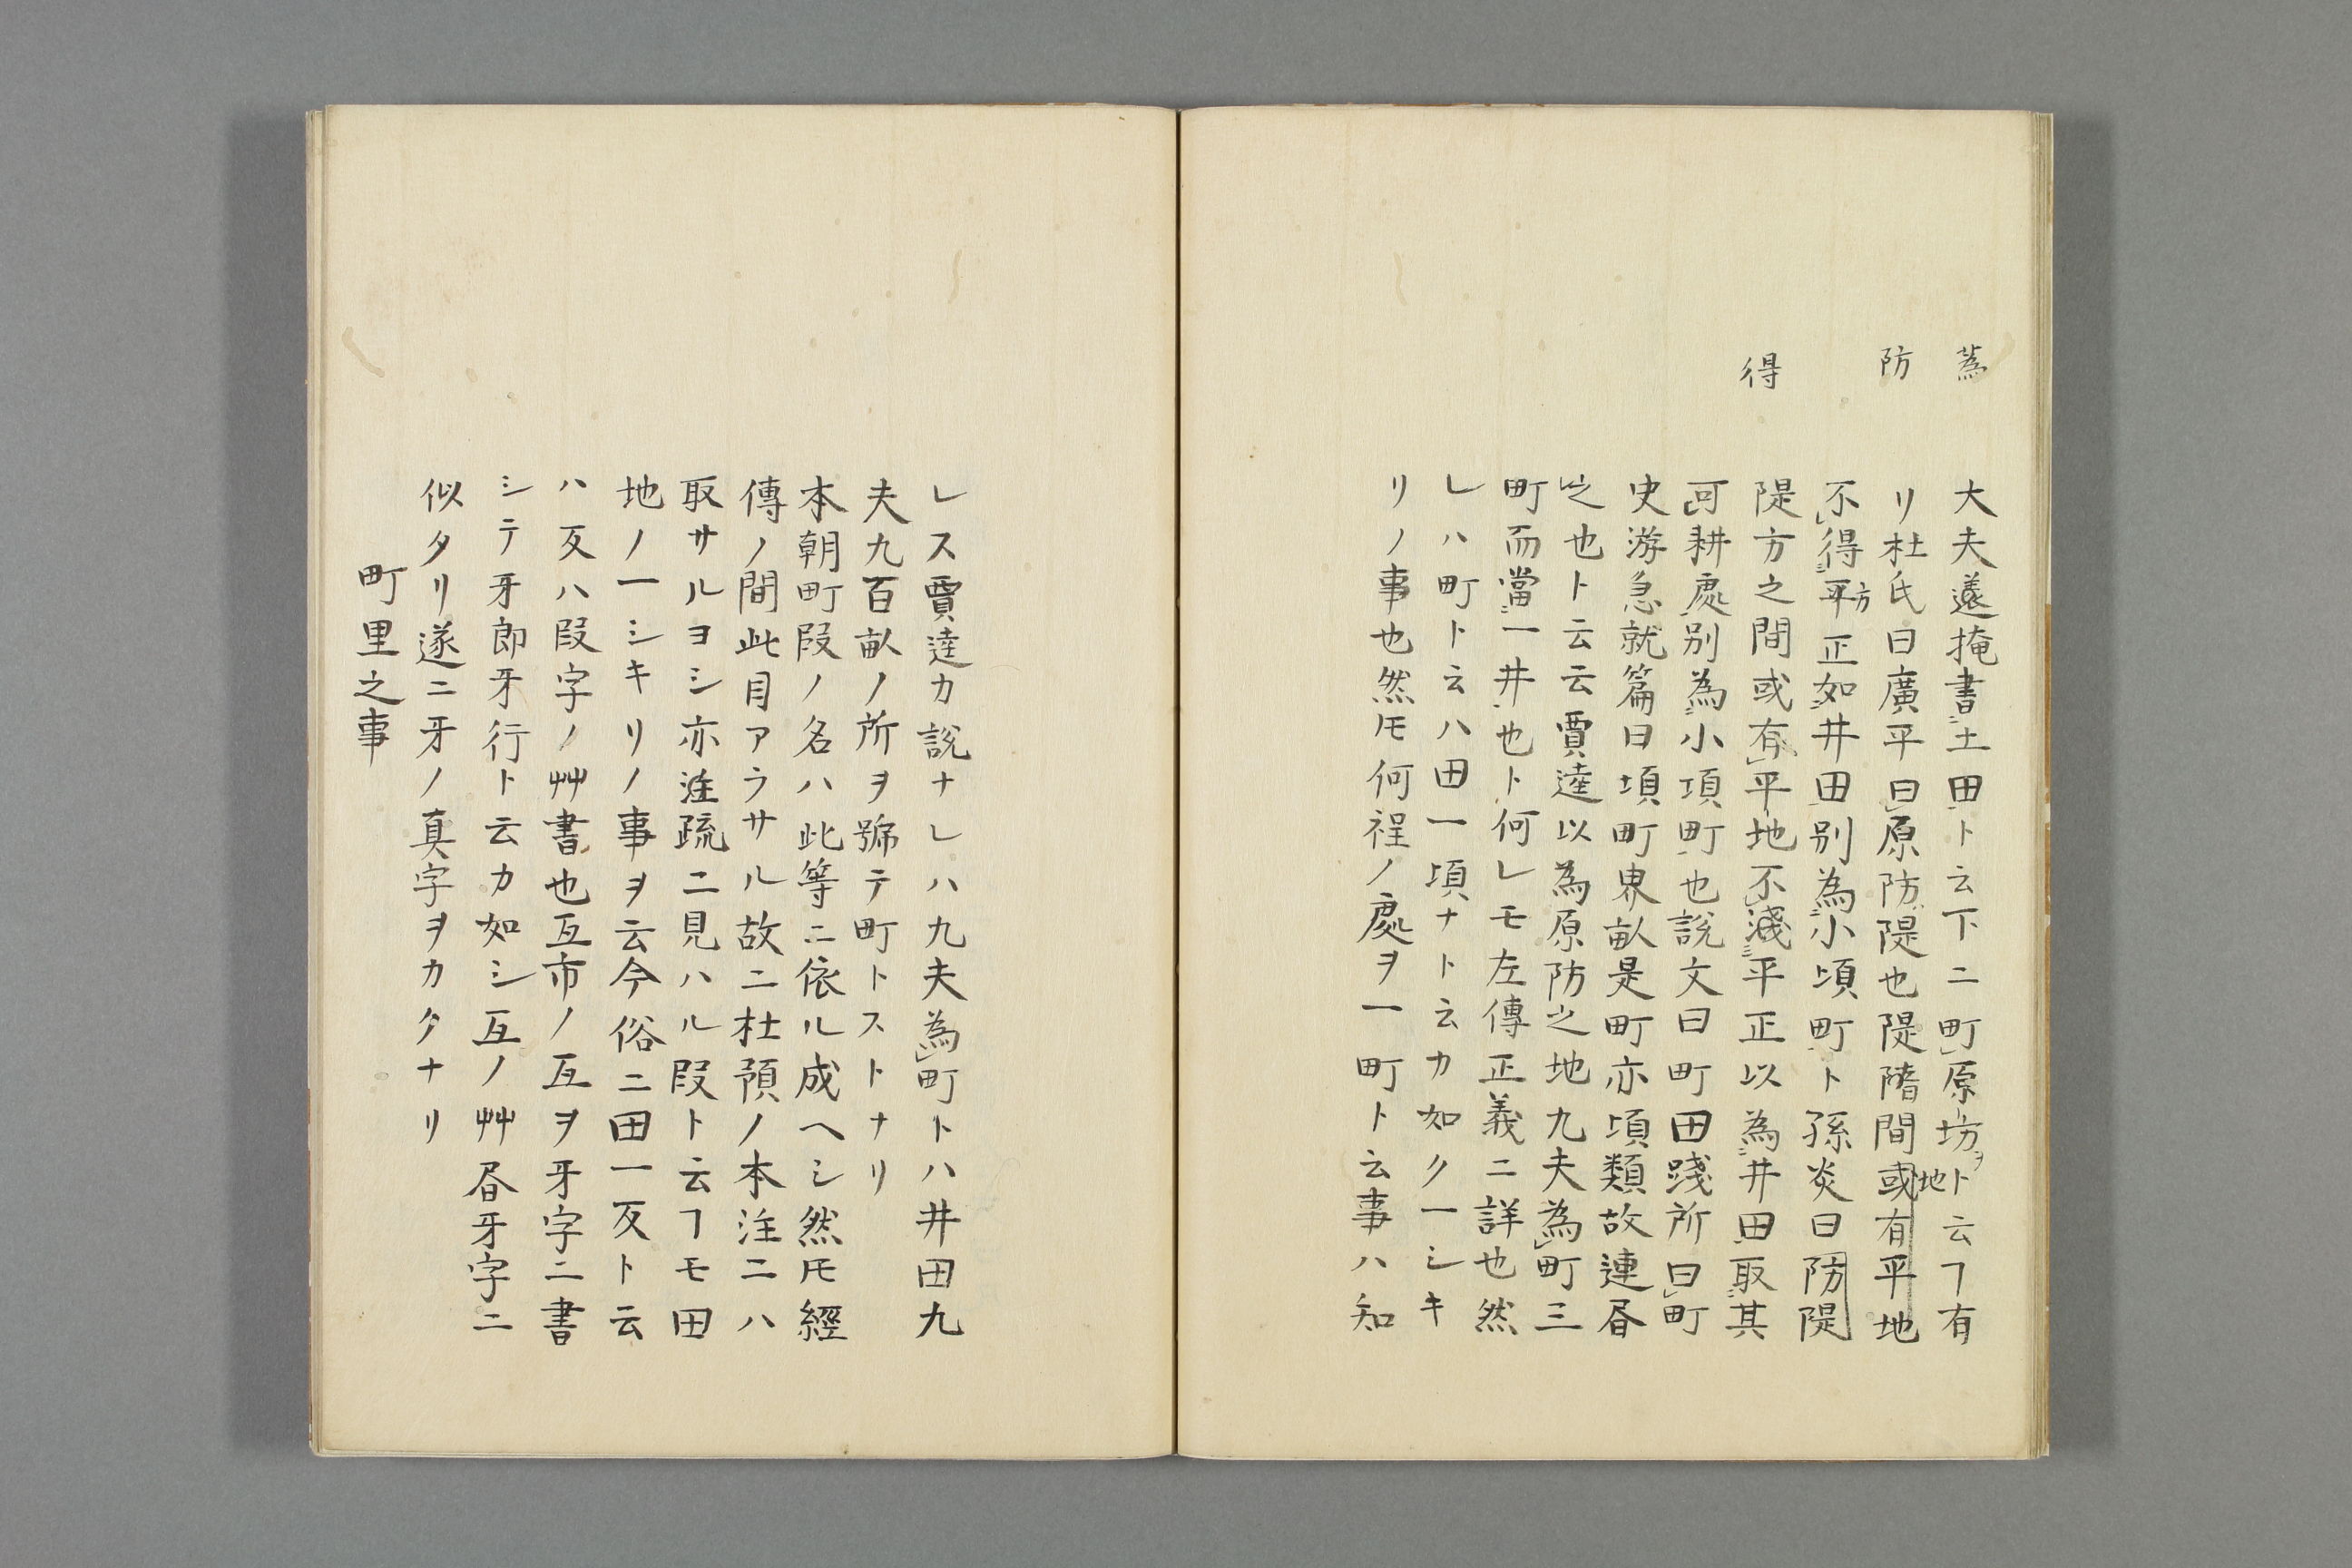 蔿
防
得
大夫薳掩書土田ト云下ニ町原坊ヲト云ヿ有
リ杜氏曰廣平曰原防隄也隄間地或有平地
不得平方正如井田別為小頃町ト孫炎曰防隄
隄方之間或有平地不淺平正以為井田取其
可耕處別為小項町也説文曰町田踐所曰町
史游急就篇曰頃町界畝是町亦頃類故連昏
之也ト云云賈逵以為原防之地九夫為町三
町而當一井也ト何レモ左傳正義ニ詳也然
レハ町ト云ハ田一頃ナト云カ如ク一シキ
リノ事也然𪜈何程ノ處ヲ一町ト云事ハ知
レス賈逵カ説ナレハ九夫為町トハ井田九
夫九百畝ノ所ヲ號テ町トストナリ
本朝町段ノ名ハ此等ニ依ル成ヘシ然𪜈經
傳ノ間此目アラサル故ニ杜預ノ本注ニハ
取サルヨシ亦注疏ニ見ハル段ト云ヿモ田
地ノ一シキリノ事ヲ云今俗ニ田一反ト云
ハ反ハ段字ノ艸書也互市ノ互ヲ牙字ニ書
シテ牙郎牙行ト云カ如シ互ノ艸昏牙字ニ
似タリ遂ニ牙ノ真字ヲカクナリ
町里之事